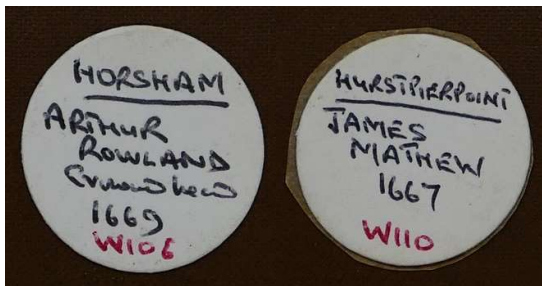 HORSHAM
ARTHUR
ROWLAND
Crowned head
1669
W106
HURSTPIERPOINT
JAMES
MATHEW
1667
W110